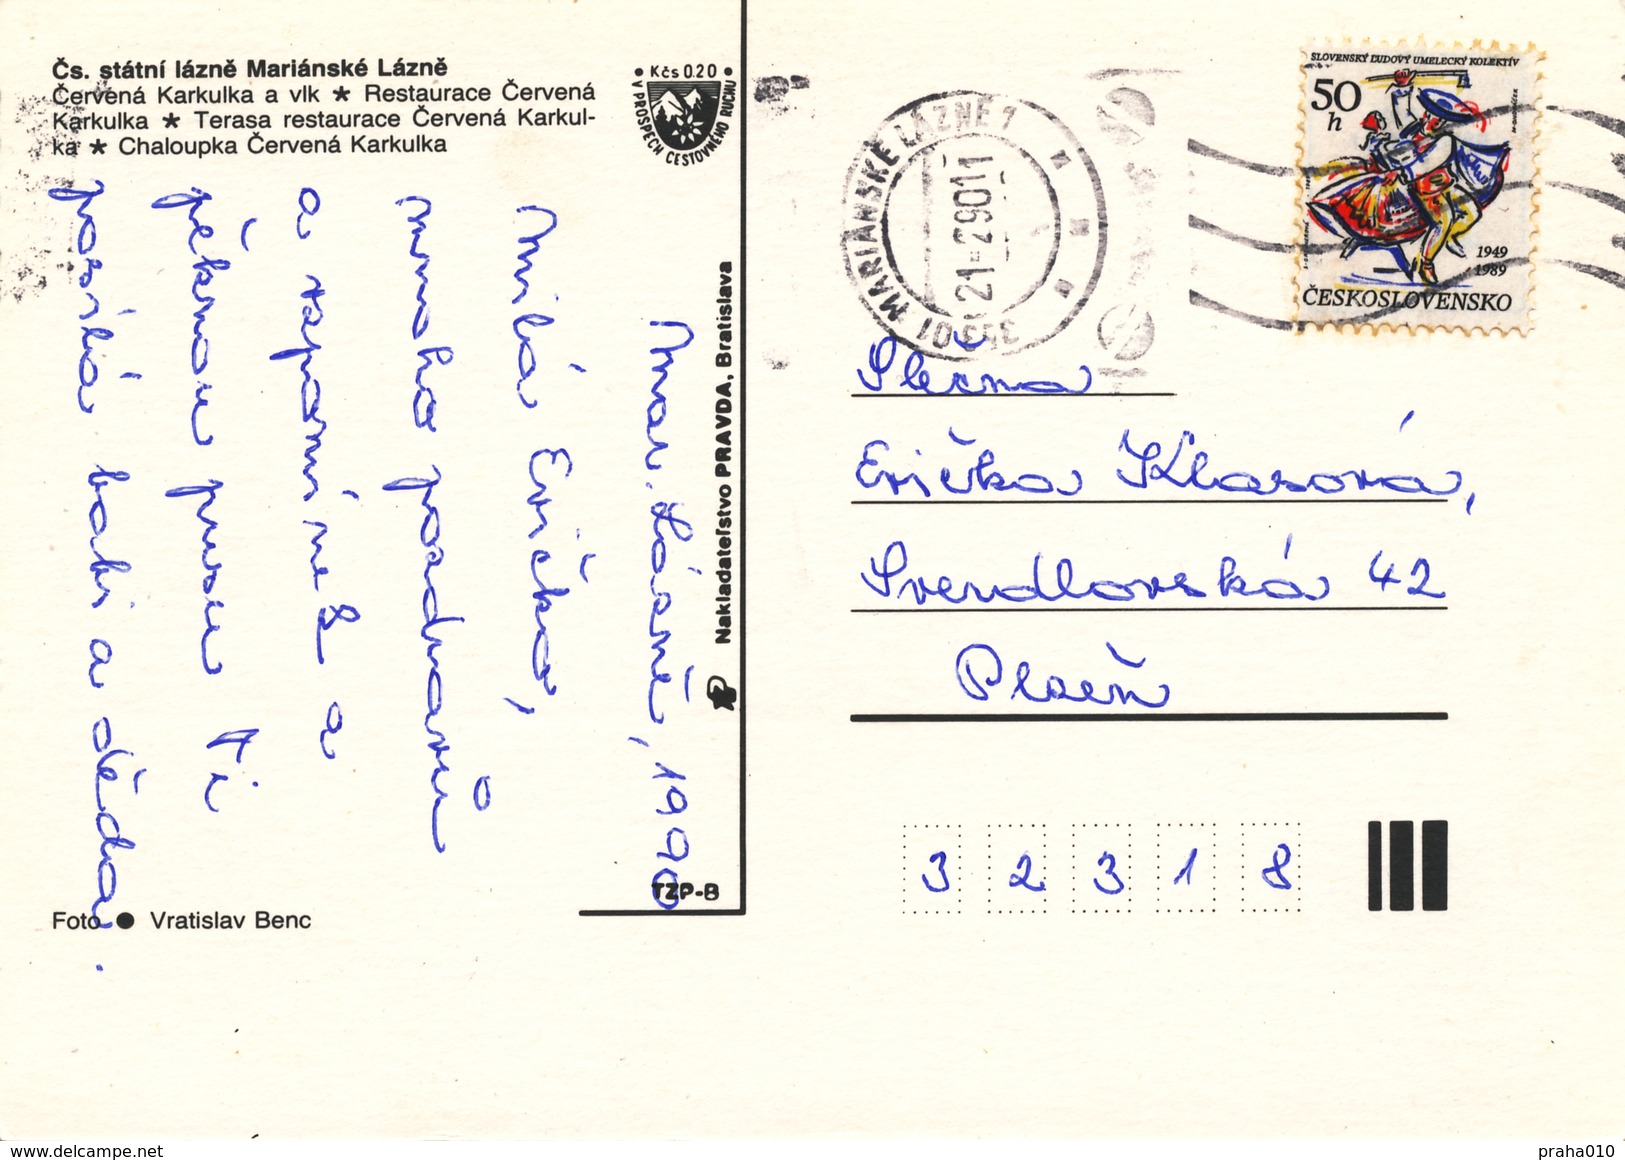 Čs. státní lázně Mariánské Lázně
Červená Karkulka a vlk ★ Restaurace Červená
Karkulka ★ Terasa restaurace Červená Karkul-
ka ★ Chaloupka Červená Karkulka
• Kčs 0.20 •
V PROSPĚCH CESTOVNÉHO RUCHU
Mar. Lázně, 1990
Milá Evičko,
mnoho pozdravů
a vzpomínek a
pěknou pusu Ti
posílá babi a děda.
Foto ● Vratislav Benc
Nakladateľstvo PRAVDA, Bratislava
TZP-B
353 01 MARIÁNSKÉ LÁZNĚ 1
SLOVENSKÝ ĽUDOVÝ UMELECKÝ KOLEKTÍV
50
h
1949
1989
ČESKOSLOVENSKO
Slečna
Evička Klasová,
Sverdlovská 42
Plzeň
3 2 3 1 8
praha010